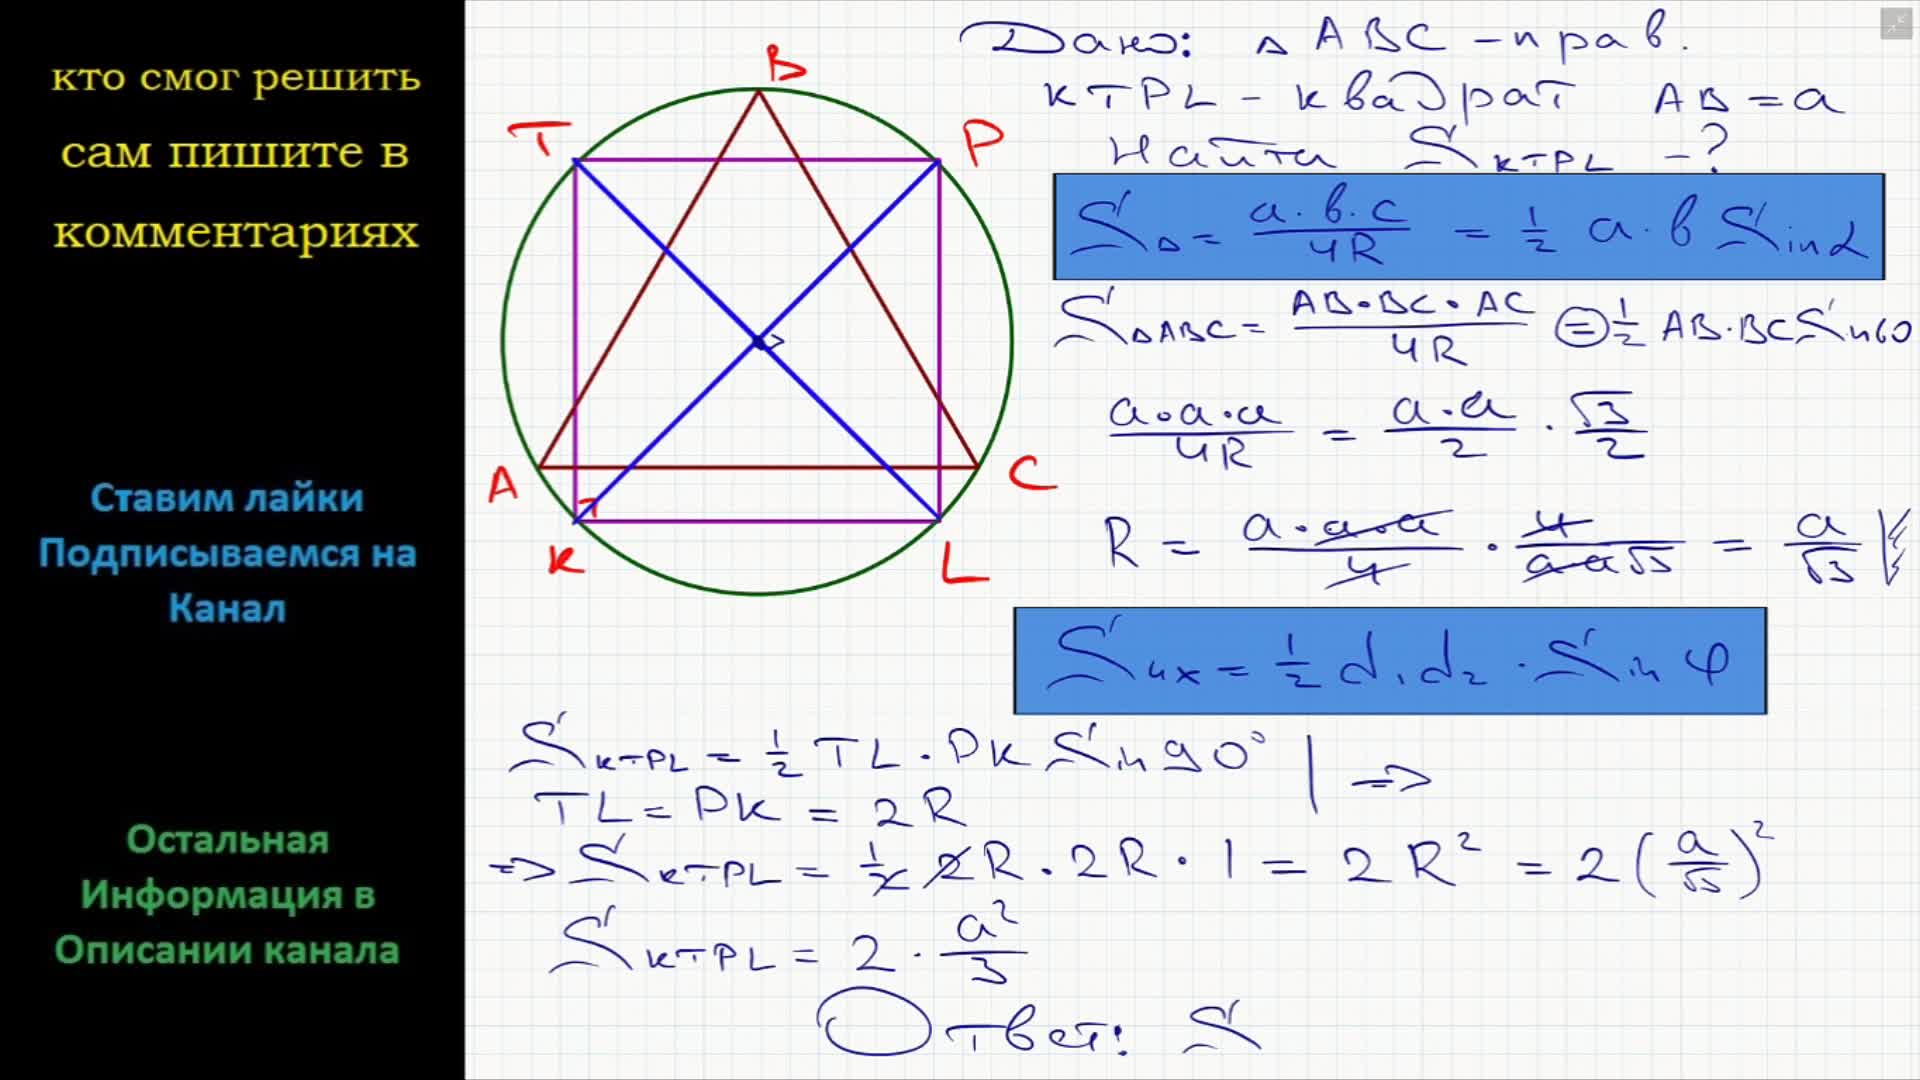 кто смог решить
сам пишите в
комментариях
Ставим лайки
Подписываемся на
Канал
Остальная
Информация в
Описании канала
B
T
P
A
C
K
L
Дано: △ABC - прав.
KTPL - квадрат AB = a
Найти S_KTPL - ?
S_△ = a·b·c / 4R = 1/2 a·b Sin α
S_△ABC = AB·BC·AC / 4R = 1/2 AB·BC Sin 60
a·a·a / 4R = a·a / 2 · √3 / 2
R = a·a·a / 4 · 4 / a·a√3 = a / √3
S_4x = 1/2 d₁d₂ · Sin φ
S_KTPL = 1/2 TL·PK Sin 90° | =>
TL = PK = 2R
=> S_KTPL = 1/2 2R · 2R · 1 = 2R² = 2(a/√3)²
S_KTPL = 2 · a²/3
Ответ: S